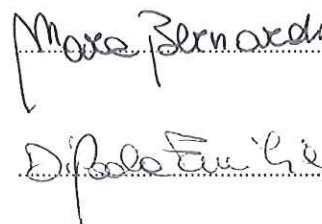 Mara Bernardi
Di Paola Emilie